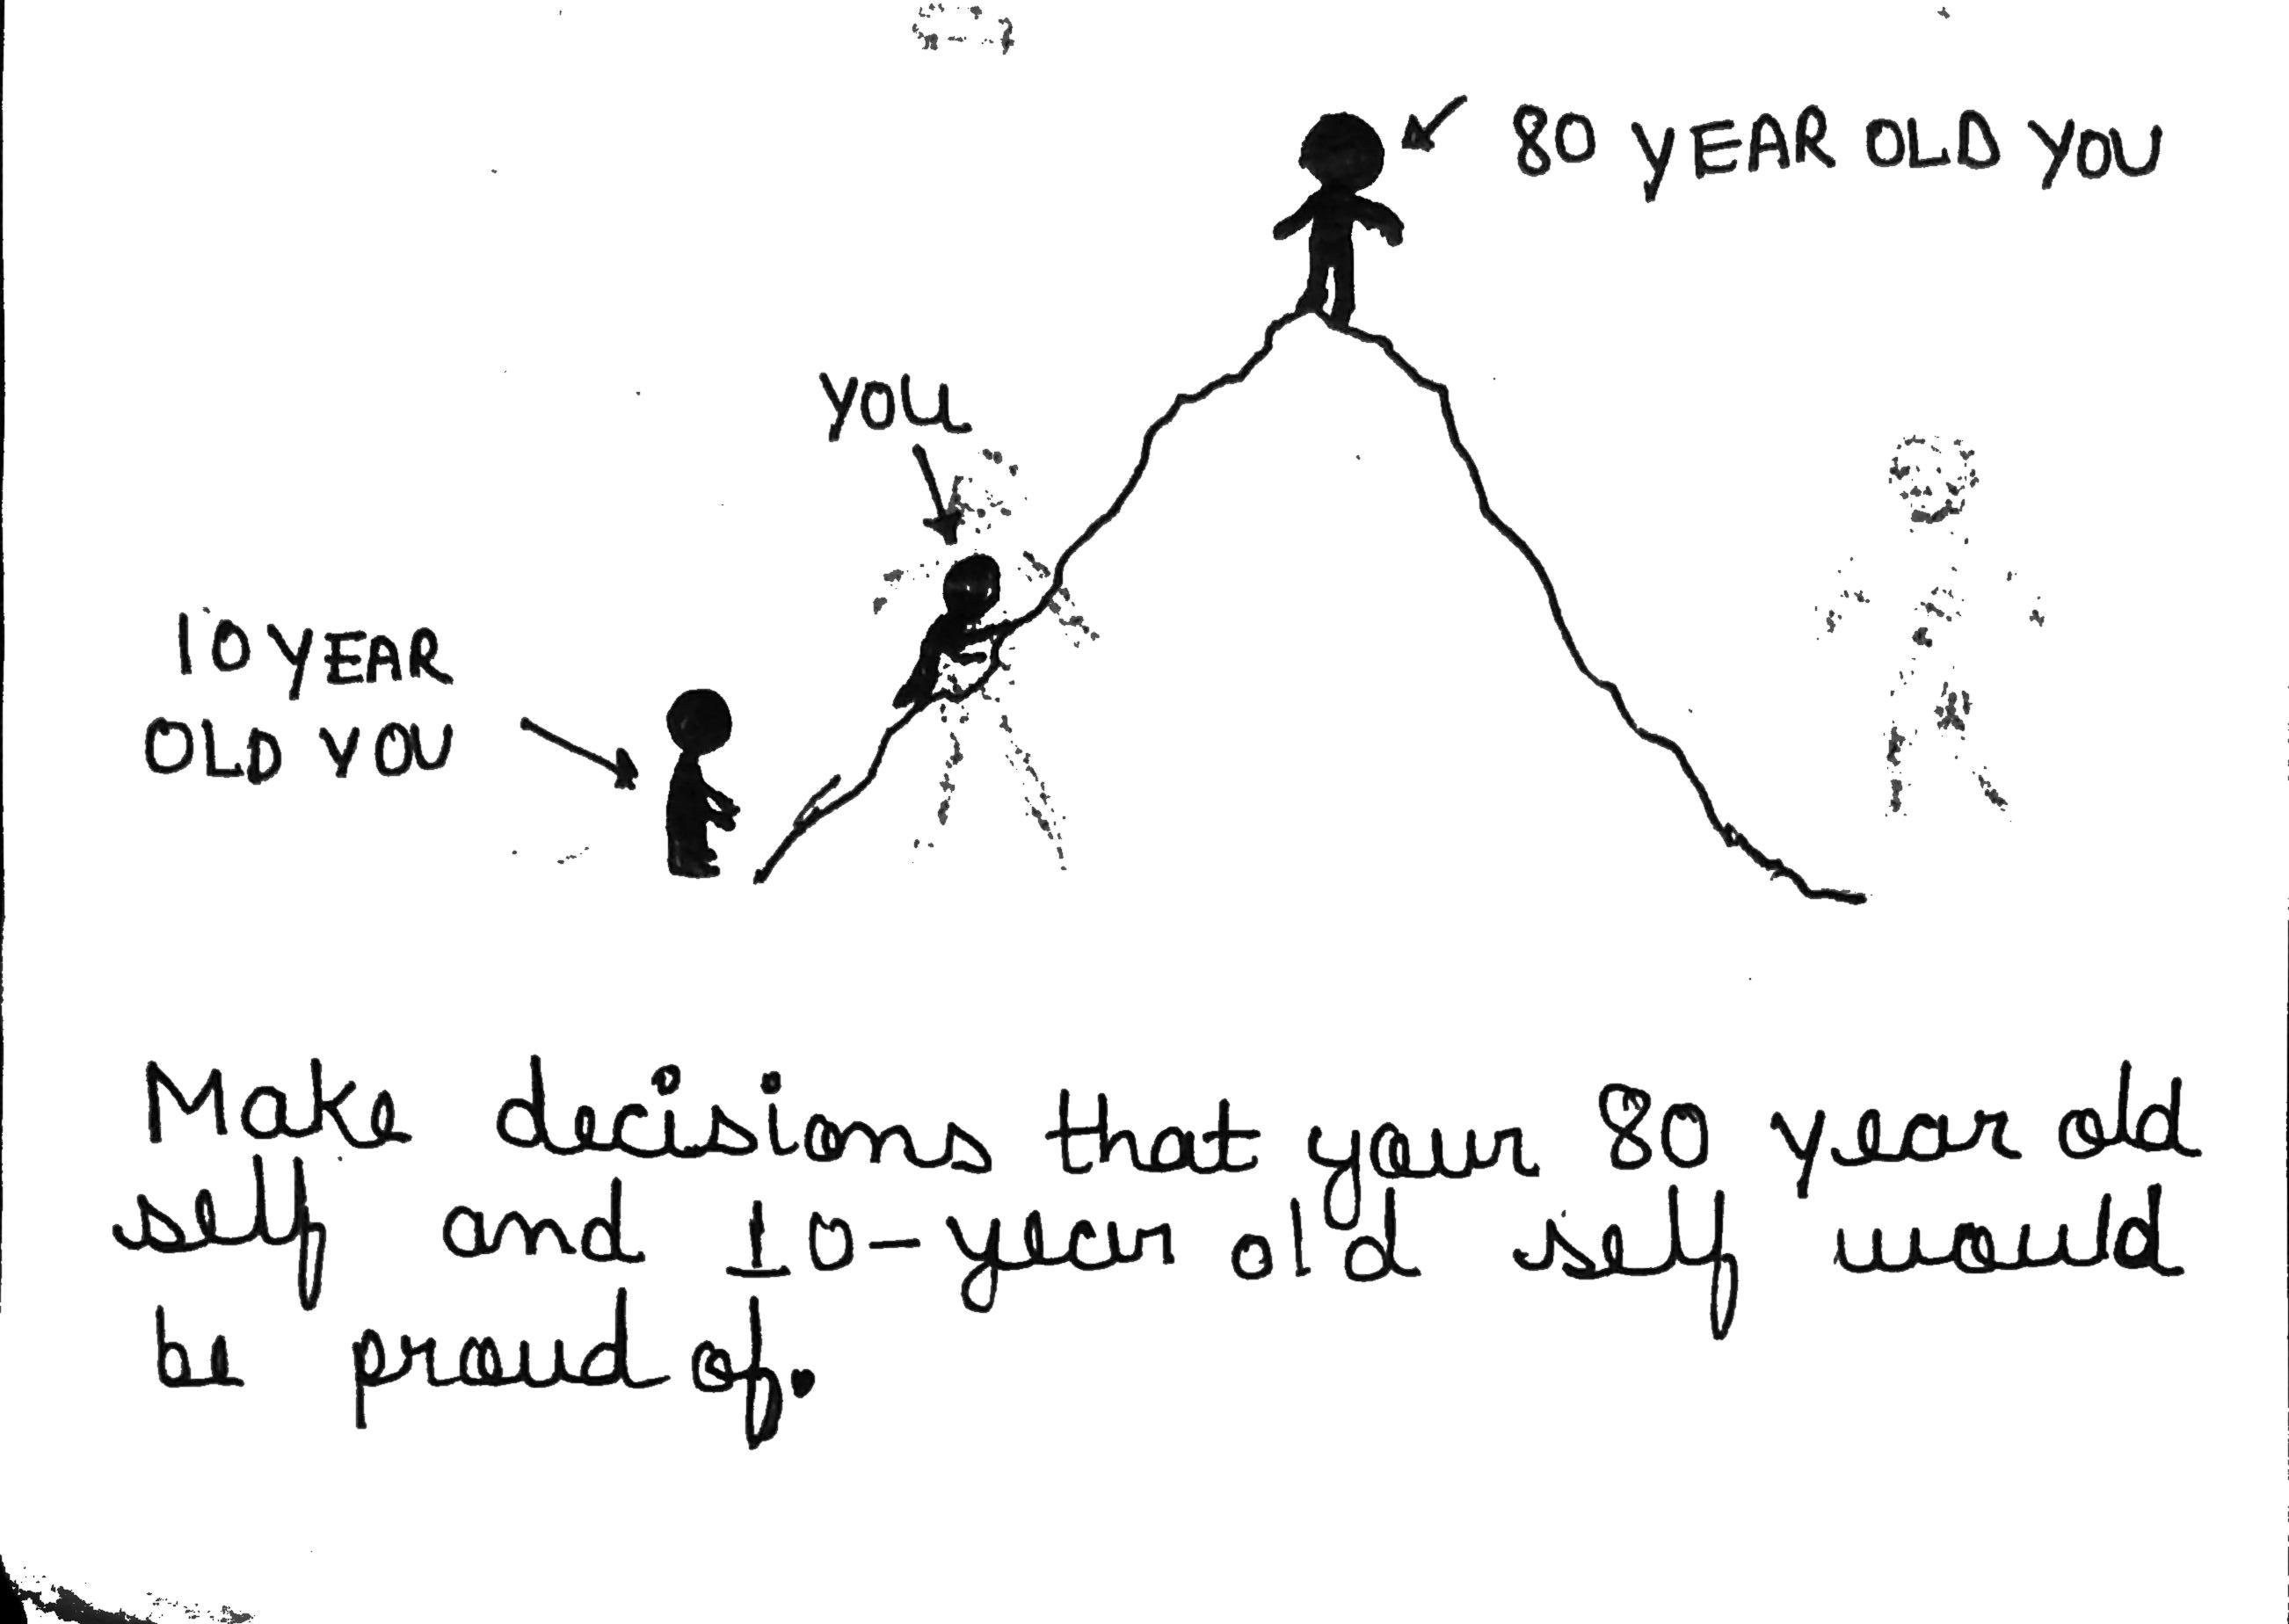 80 YEAR OLD YOU
YOU
10 YEAR
OLD YOU
Make decisions that your 80 year old
self and 10-year old self would
be proud of.